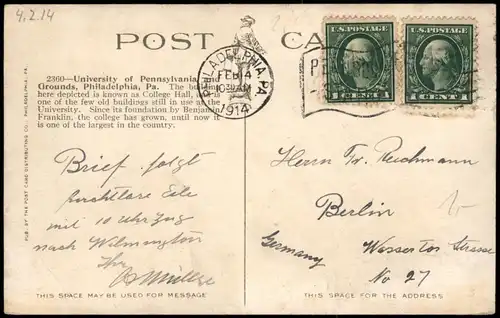 4.2.14
POST CA
2360—University of Pennsylvania
Grounds, Philadelphia, Pa. The
here depicted is known as College Hall,
one of the few old buildings still in use
University. Since its foundation by Benjamin
Franklin, the college has grown, until now it
is one of the largest in the country.
PHILADELPHIA, PA.
FEB 4
1914
U.S. POSTAGE
1 CENT 1
U.S. POSTAGE
1 CENT 1
PUB. BY THE POST CARD DISTRIBUTING CO., PHILADELPHIA, PA.
Brief folgt
furchtbare Eile
mit 10 uhr Zug
nach Wilmington
Ihr
Müller
Herrn Fr. Reichmann
Berlin
Germany
Wassertor Strasse
No 27
THIS SPACE MAY BE USED FOR MESSAGE
THIS SPACE IS FOR THE ADDRESS